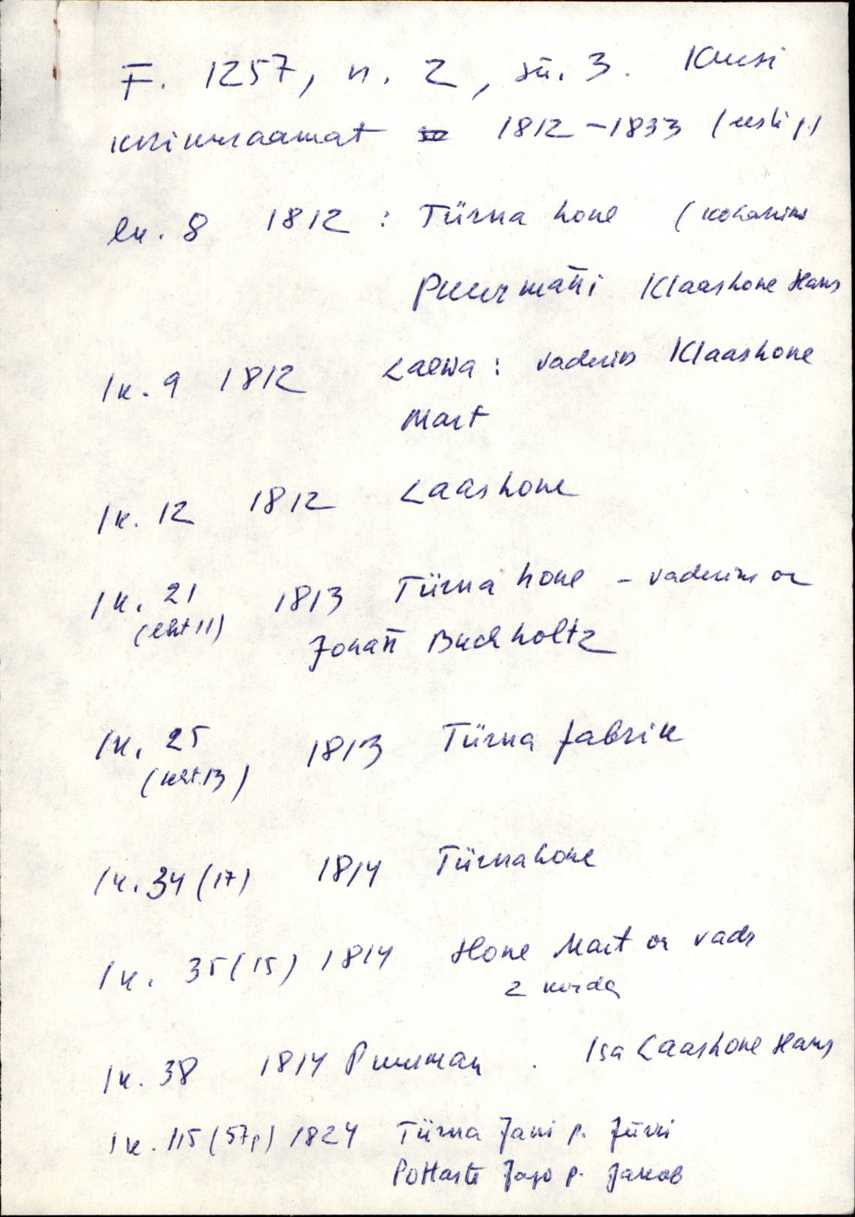 F. 1257, n. 2, sü. 3. Kursi
kirikuraamat 1812-1833 (eesti p.)
lk. 8 1812 : Türna hone (kohanimi
Puurmañi Klaashone Hans
lk. 9 1812 Laewa: vaderiks Klaashone
Mart
lk. 12 1812 Laashone
lk. 21 1813 Türna hone - vaderiks on
(leht 11) Johañ Buchholtz
lk. 25 1813 Türna fabrik
(leht 13)
lk. 34 (17) 1814 Türnahone
lk. 35 (15) 1814 Hone Mart on vader
2 korda
lk. 38 1814 Puurman . Isa Laashone Hans
lk. 115 (57p) 1824 Türna Jani p. Jürri
Jago p. Jakob